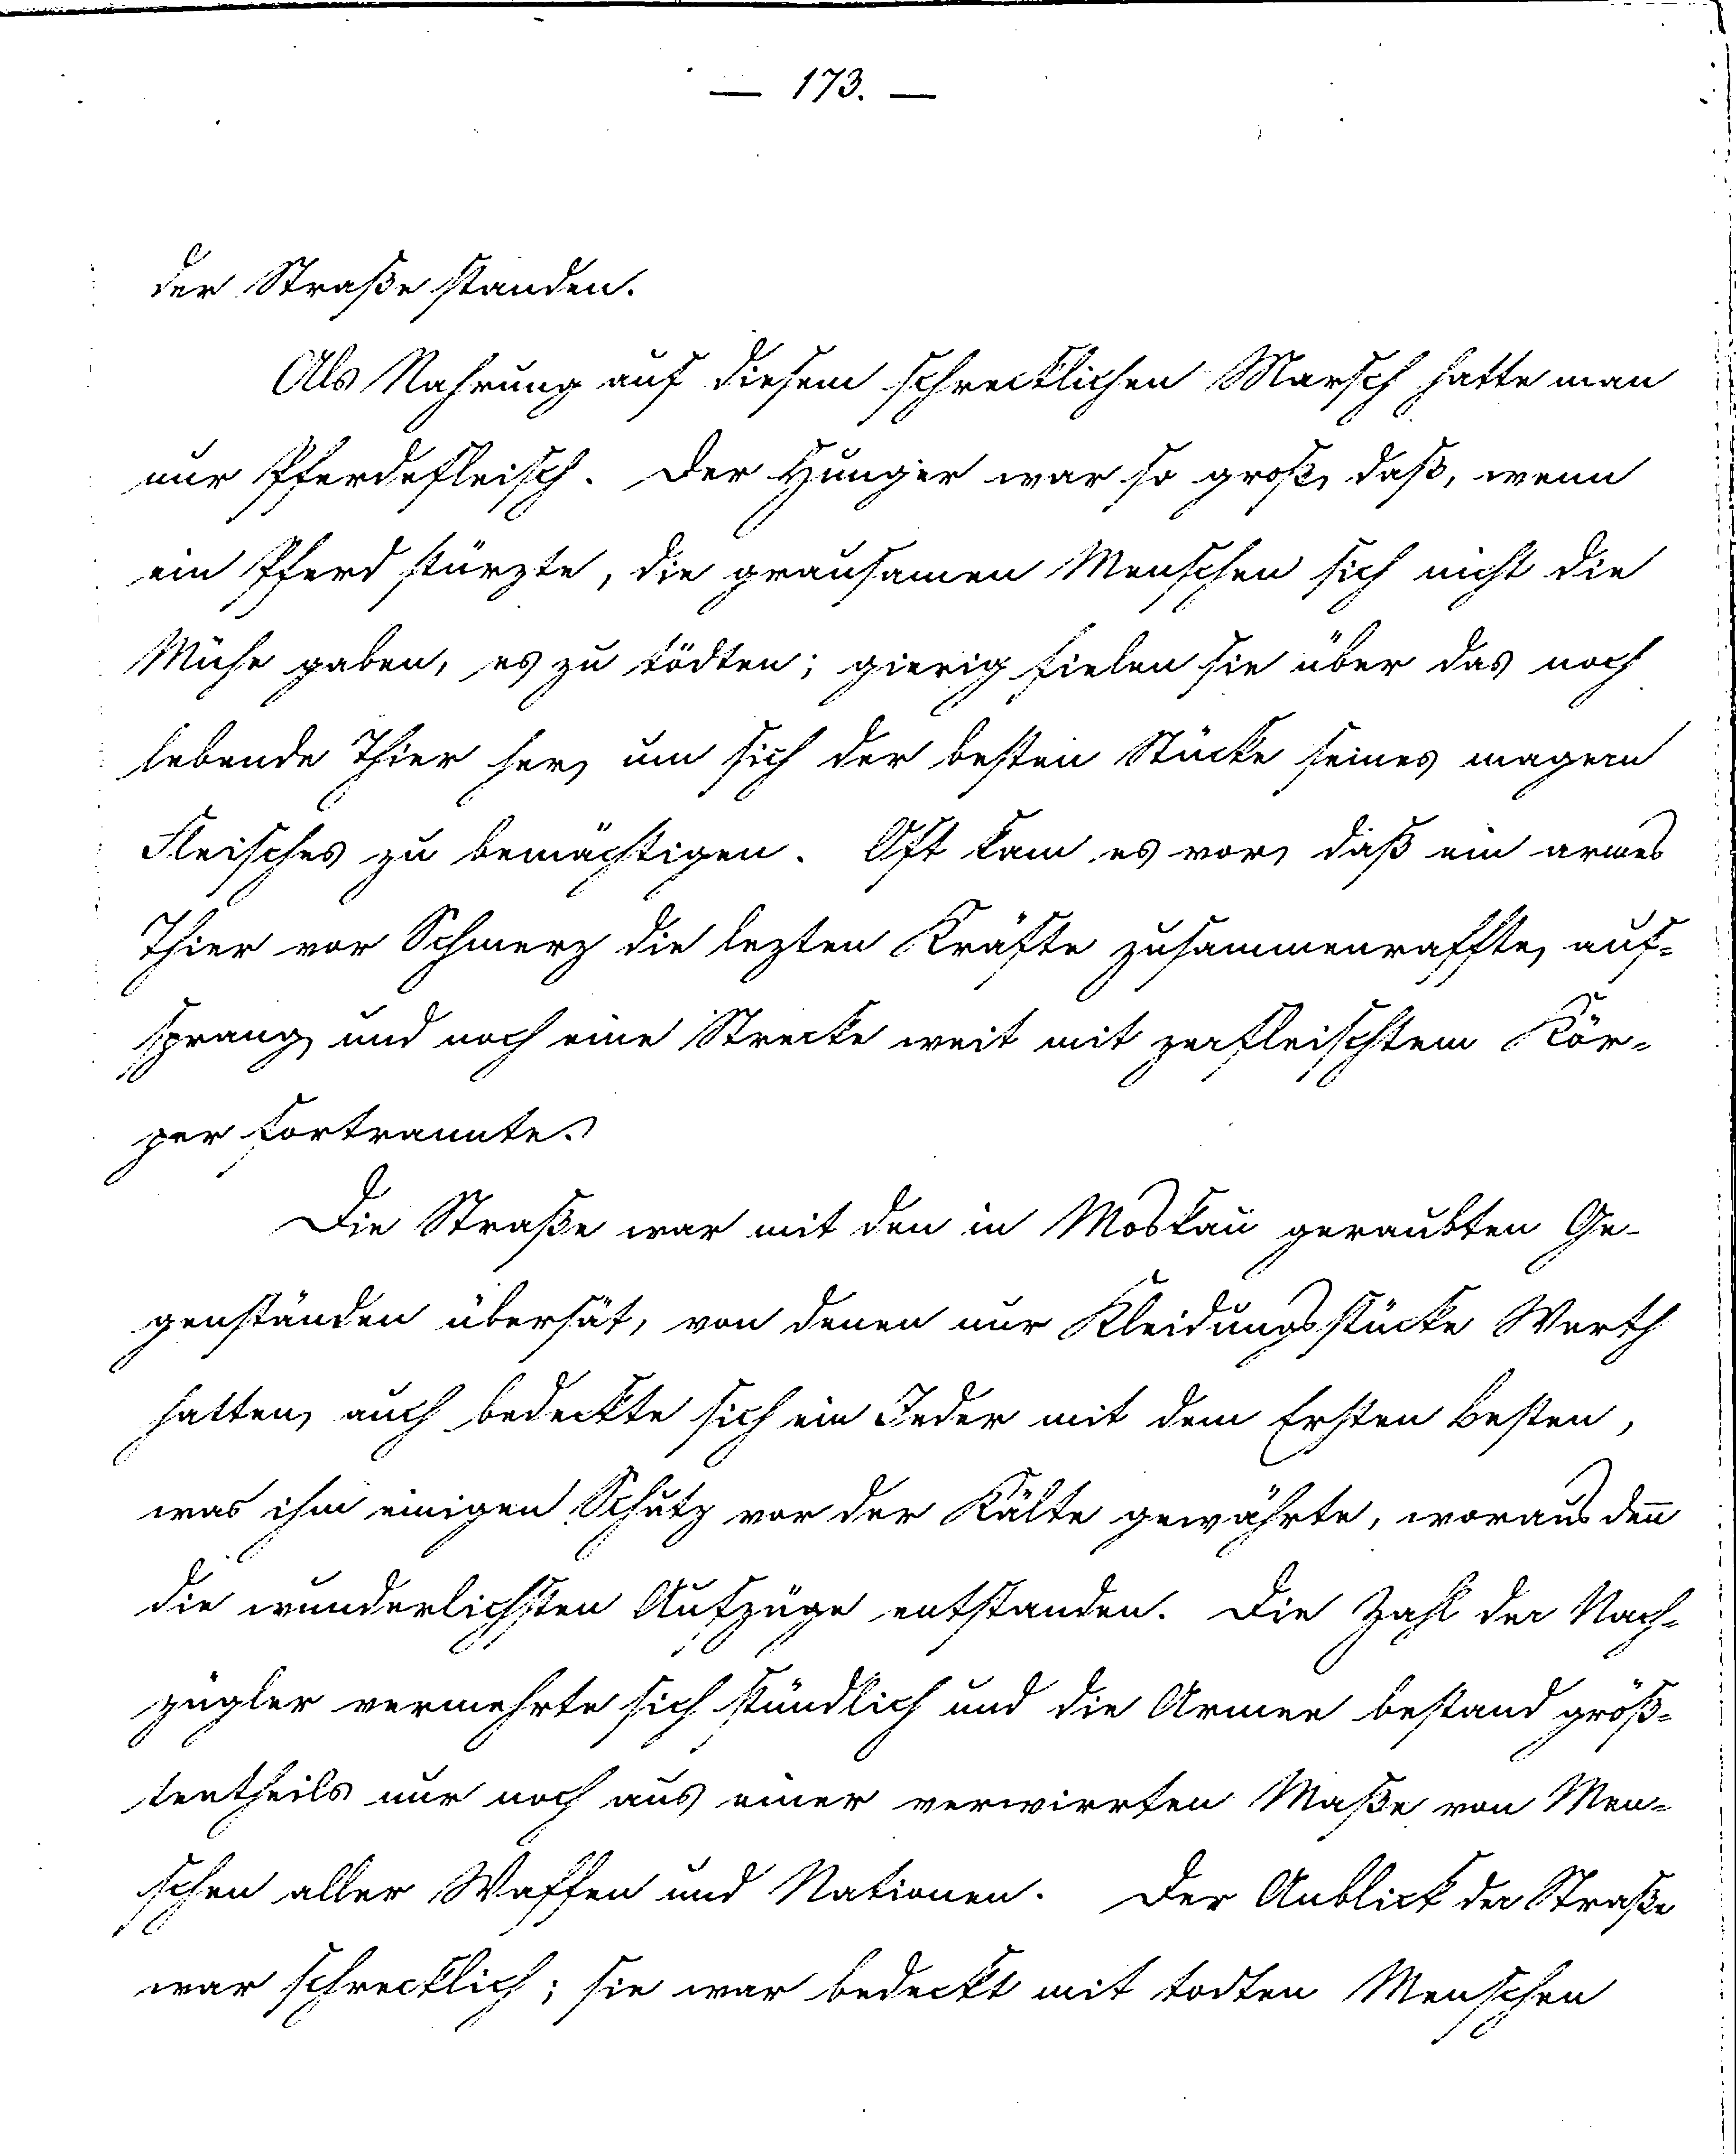 — 173. —
der Straße standen.
Als Nahrung auf diesem schrecklichen Marsch hatte man
nur Pferdefleisch. Der Hunger war so groß, daß, wenn
ein Pferd stürzte, die grausamen Menschen sich nicht die
Mühe gaben, es zu tödten; gierig fielen sie über das noch
lebende Thier her, um sich der besten Stücke seines magern
Fleisches zu bemächtigen. Oft kam es vor, daß ein armes
Thier vor Schmerz die lezten Kräfte zusammenraffte, auf-
sprang, und noch eine Strecke weit mit zerfleischtem Kör-
per fortrannte.
Die Straße war mit den in Moskau geraubten Ge-
genständen übersät, von denen nur Kleidungsstücke Werth
hatten, auch bedeckte sich ein Jeder mit dem Ersten besten,
was ihm einigen Schutz vor der Kälte gewährte, woraus deñ
die wunderlichsten Aufzüge entstanden. Die Zahl der Nach-
zügler vermehrte sich stündlich und die Armee bestand größ-
tentheils nur noch aus einer verwirrten Maße von Men-
schen aller Waffen und Nationen. Der Anblick der Straße
war schrecklich; sie war bedeckt mit todten Menschen